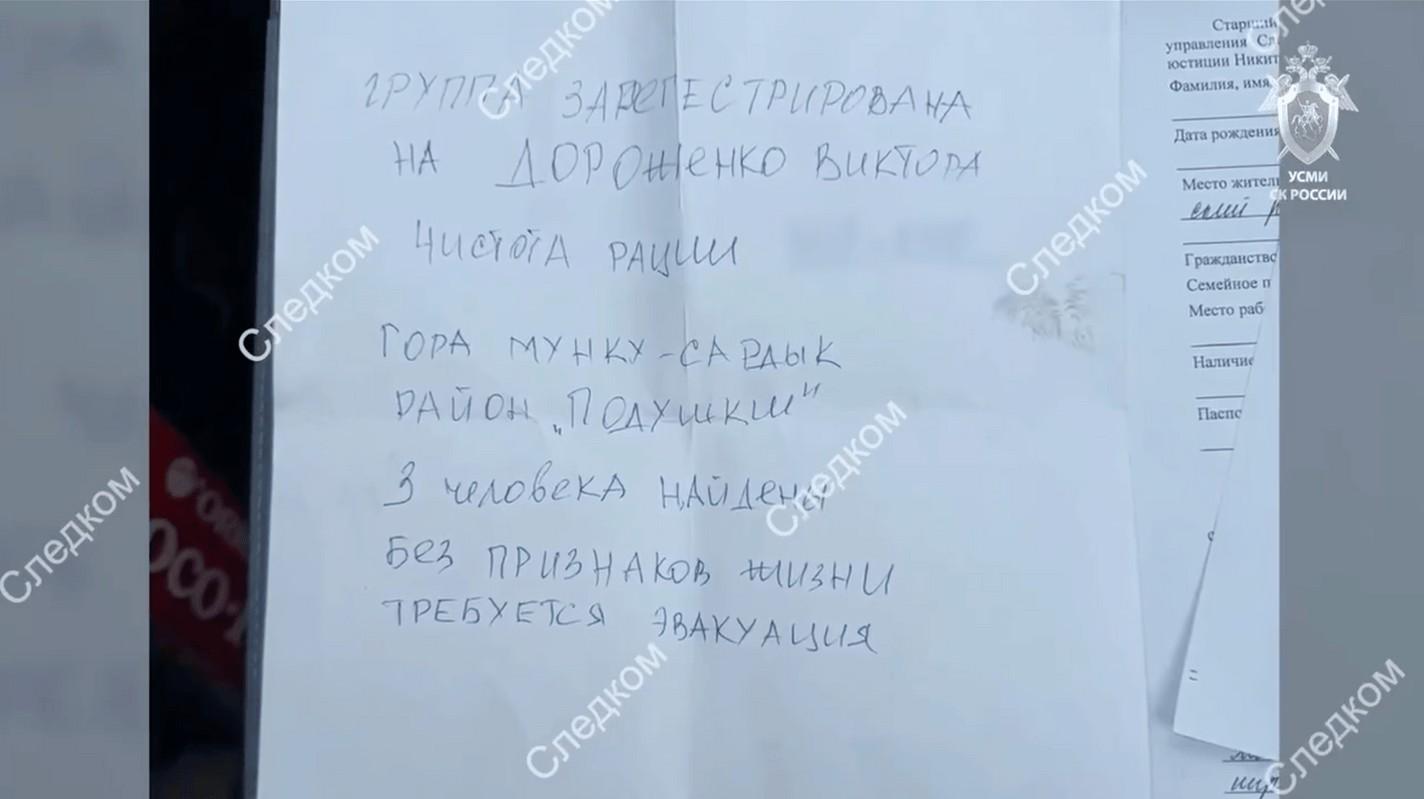 ГРУППА ЗАРЕГЕСТРИРОВАНА
НА ДОРОЖЕНКО ВИКТОРА
ЧИСТОТА РАЦИИ
ГОРА МУНКУ-САРДЫК
РАЙОН „ПОДУШКИ"
3 человека найдены
БЕЗ ПРИЗНАКОВ ЖИЗНИ
ТРЕБУЕТСЯ ЭВАКУАЦИЯ
Старший
управления Сл
юстиции Никит
Фамилия, имя,
Дата рождения
Место жител
ский р
Гражданство
Семейное п
Место раб
Наличие
Паспо
УСМИ
СК РОССИИ
Следком
Следком
Следком
Следком
Следком
Следком
Следком
Следком